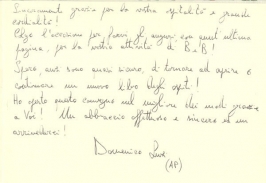 grazie per la vostra ospitalità e grande
cordialità!
Colgo l'occasione per farvi gli auguri, con quest'ultima
pagina, per la vostra attività di B&B!
Spero, ano sono quasi sicuro, di tornare ad aprire e
continuare un nuovo libro degli ospiti!
Ho aperto questo nel migliore dei modi grazie
a Voi! Un abbraccio affettuoso e sincero ed un
arrivederci!
Domenico
(AP)